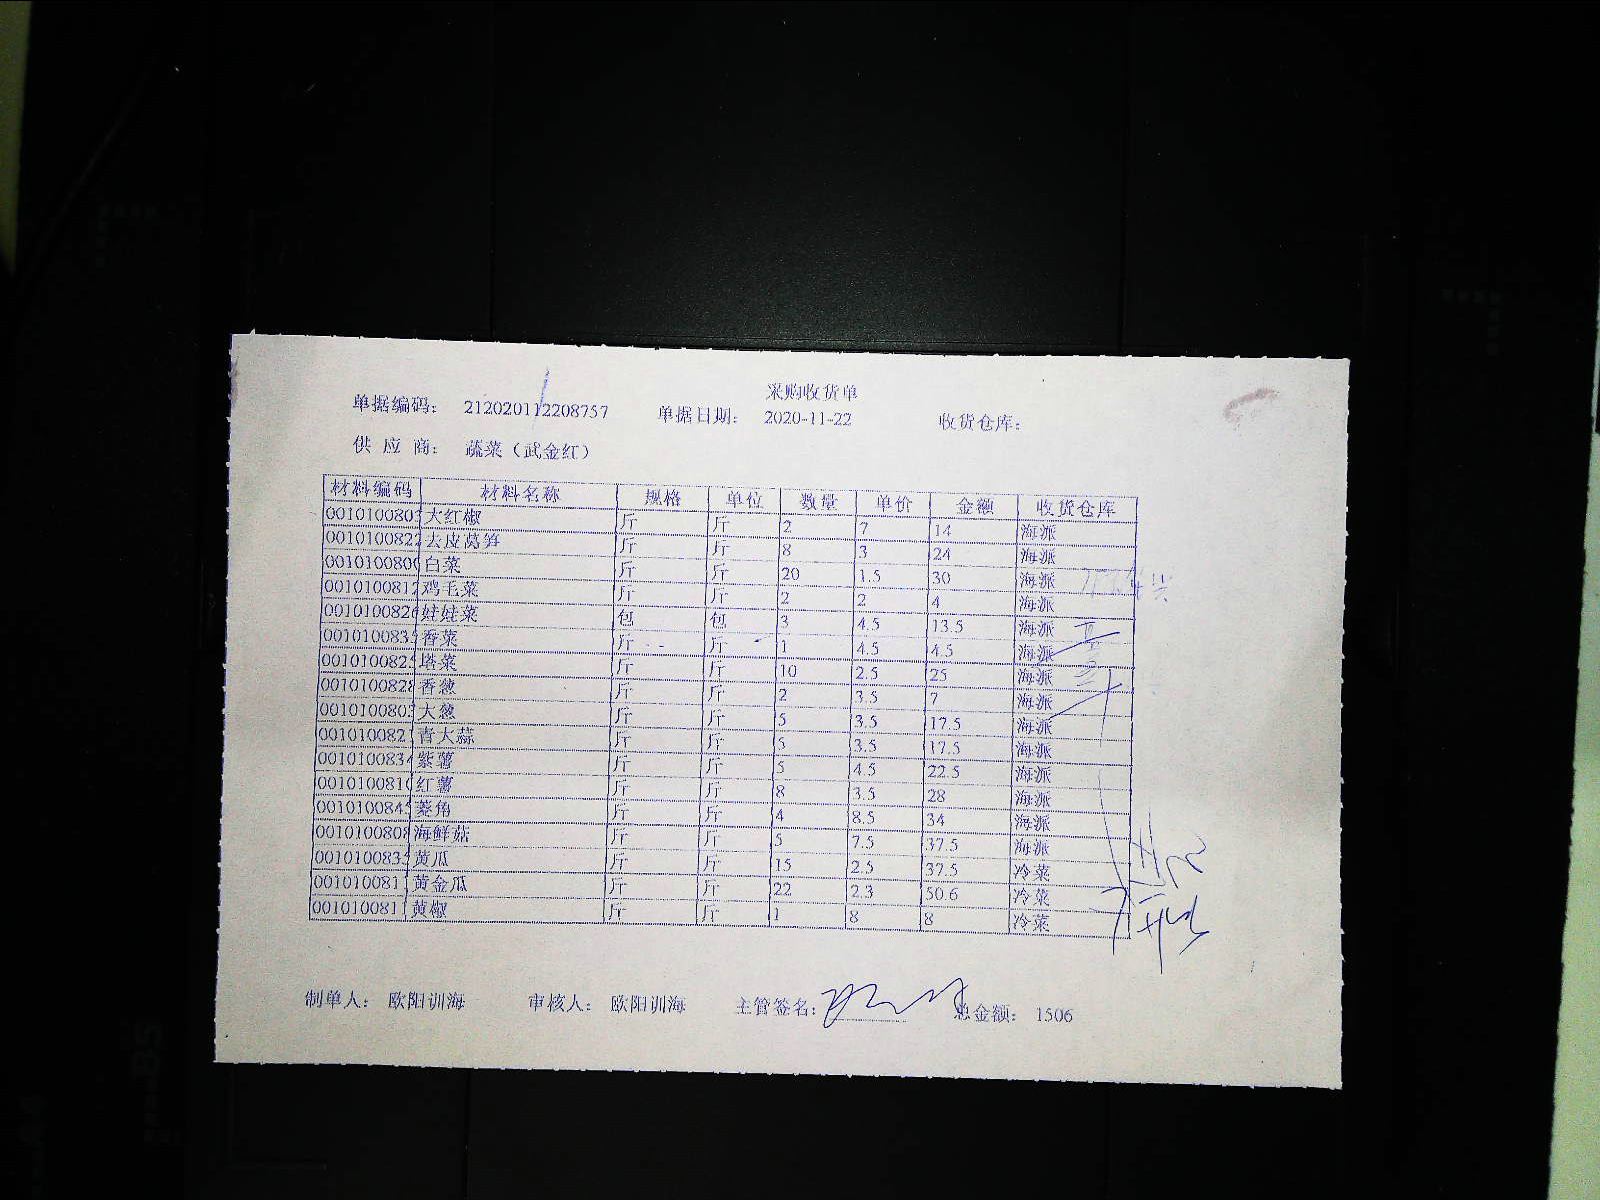 采购收货单
单据编码： 212020112208757 单据日期： 2020-11-22 收货仓库：
供 应 商： 蔬菜（武金红）
材料编码 材料名称 规格 单位 数量 单价 金额 收货仓库
0010100803 大红椒 斤 斤 2 7 14 海派
0010100822 去皮莴笋 斤 斤 8 3 24 海派
0010100800 白菜 斤 斤 20 1.5 30 海派
0010100812 鸡毛菜 斤 斤 2 2 4 海派
0010100826 娃娃菜 包 包 3 4.5 13.5 海派
0010100835 香菜 斤 斤 1 4.5 4.5 海派
0010100825 塔菜 斤 斤 10 2.5 25 海派
0010100828 香葱 斤 斤 2 3.5 7 海派
0010100803 大葱 斤 斤 5 3.5 17.5 海派
0010100821 青大蒜 斤 斤 5 3.5 17.5 海派
0010100834 紫薯 斤 斤 5 4.5 22.5 海派
0010100810 红薯 斤 斤 8 3.5 28 海派
0010100845 菱角 斤 斤 4 8.5 34 海派
0010100808 海鲜菇 斤 斤 5 7.5 37.5 海派
0010100835 黄瓜 斤 斤 15 2.5 37.5 冷菜
001010081 黄金瓜 斤 斤 22 2.3 50.6 冷菜
001010081 黄椒 斤 斤 1 8 8 冷菜
制单人： 欧阳训海 审核人： 欧阳训海 主管签名： 总金额： 1506